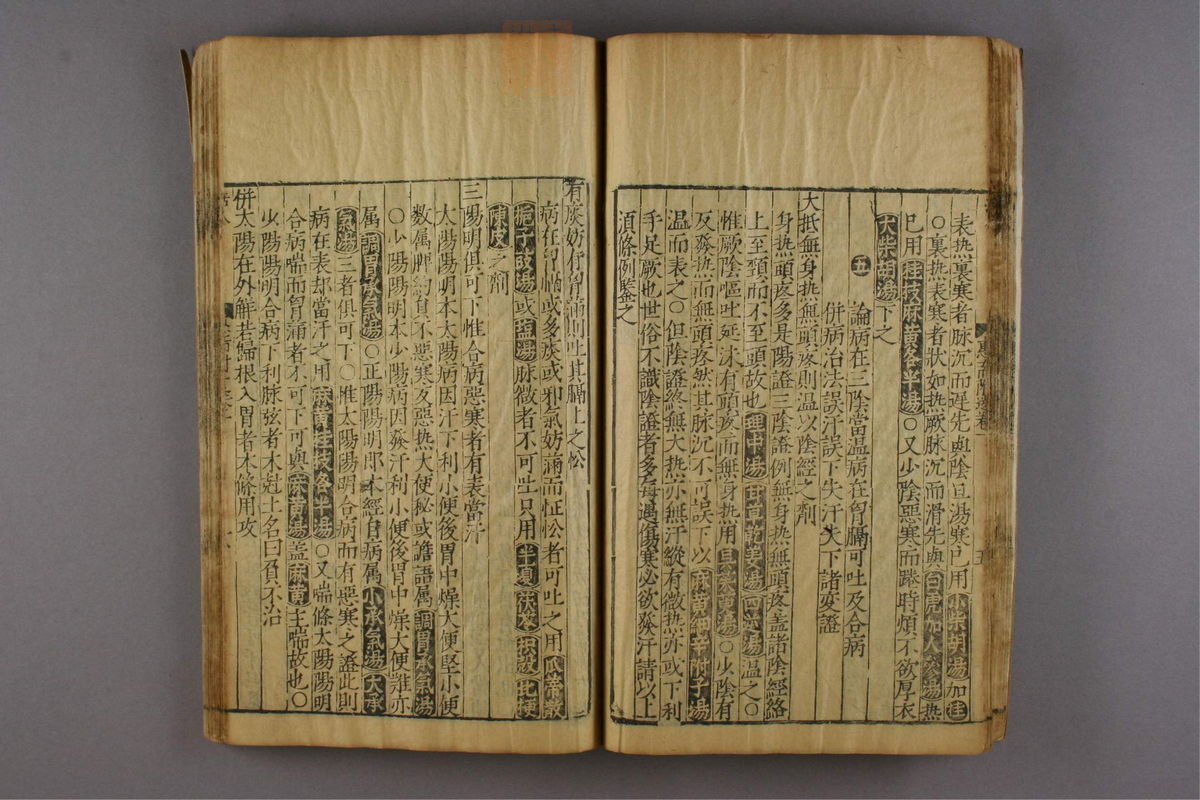 表热裏寒者脉沉而遅先與陰旦湯寒已用小柴胡湯加桂
○裏热表寒者狀如热厥脉沉而滑先與白虎加人參湯热
已用桂枝麻黄各半湯○又少陰惡寒而踡時煩不欲厚衣
大柴胡湯下之
五 論病在三陰當温病在胷膈可吐及合病
併病治法誤汗誤下失汗失下諸変證
大抵無身热無頭疼則温以陰經之劑
身热頭疼多是陽證三陰證例無身热無頭疼盖諸陰經絡
上至頸而不至頭故也理中湯甘草乾姜湯四逆湯温之○
惟厥陰嘔吐延沫有頭疼而無身热用吳茱萸湯○少陰有
反發热而無頭疼然其脉沉不可誤下以麻黄細辛附子湯
温而表之○但陰證終無大热亦無汗縱有微热亦或下利
手足厥也世俗不識陰證者多每遇傷寒必欲發汗請以上
湏條例鍳之
有痰妨侼胷滿則吐其膈上之忪
病在胷膈或多痰或邪氣妨滿而怔忪者可吐之用瓜蒂散
梔子豉湯或塩湯脉微者不可吐只用半夏茯苓枳殻桔梗
陳皮之劑
三陽明俱可下惟合病惡寒者有表當汗
太陽陽明本太陽病因汗下利小便後胃中燥大便堅小便
数属脾約負不惡寒反惡热大便秘或譫語属調胃承氣湯
○少陽陽明本少陽病因發汗利小便後胃中燥大便難亦
属調胃承氣湯○正陽陽明即本經自病属小承氣湯大承
氣湯三者俱可下○惟太陽陽明合病而有惡寒之證此則
病在表却當汗之用麻黄桂枝各半湯○又喘條太陽陽明
合病喘而胷滿者不可下可與麻黄湯盖麻黄主喘故也○
少陽陽明合病下利脉弦者木尅土名曰負不治
併太陽在外解若歸根入胃者本條用攻